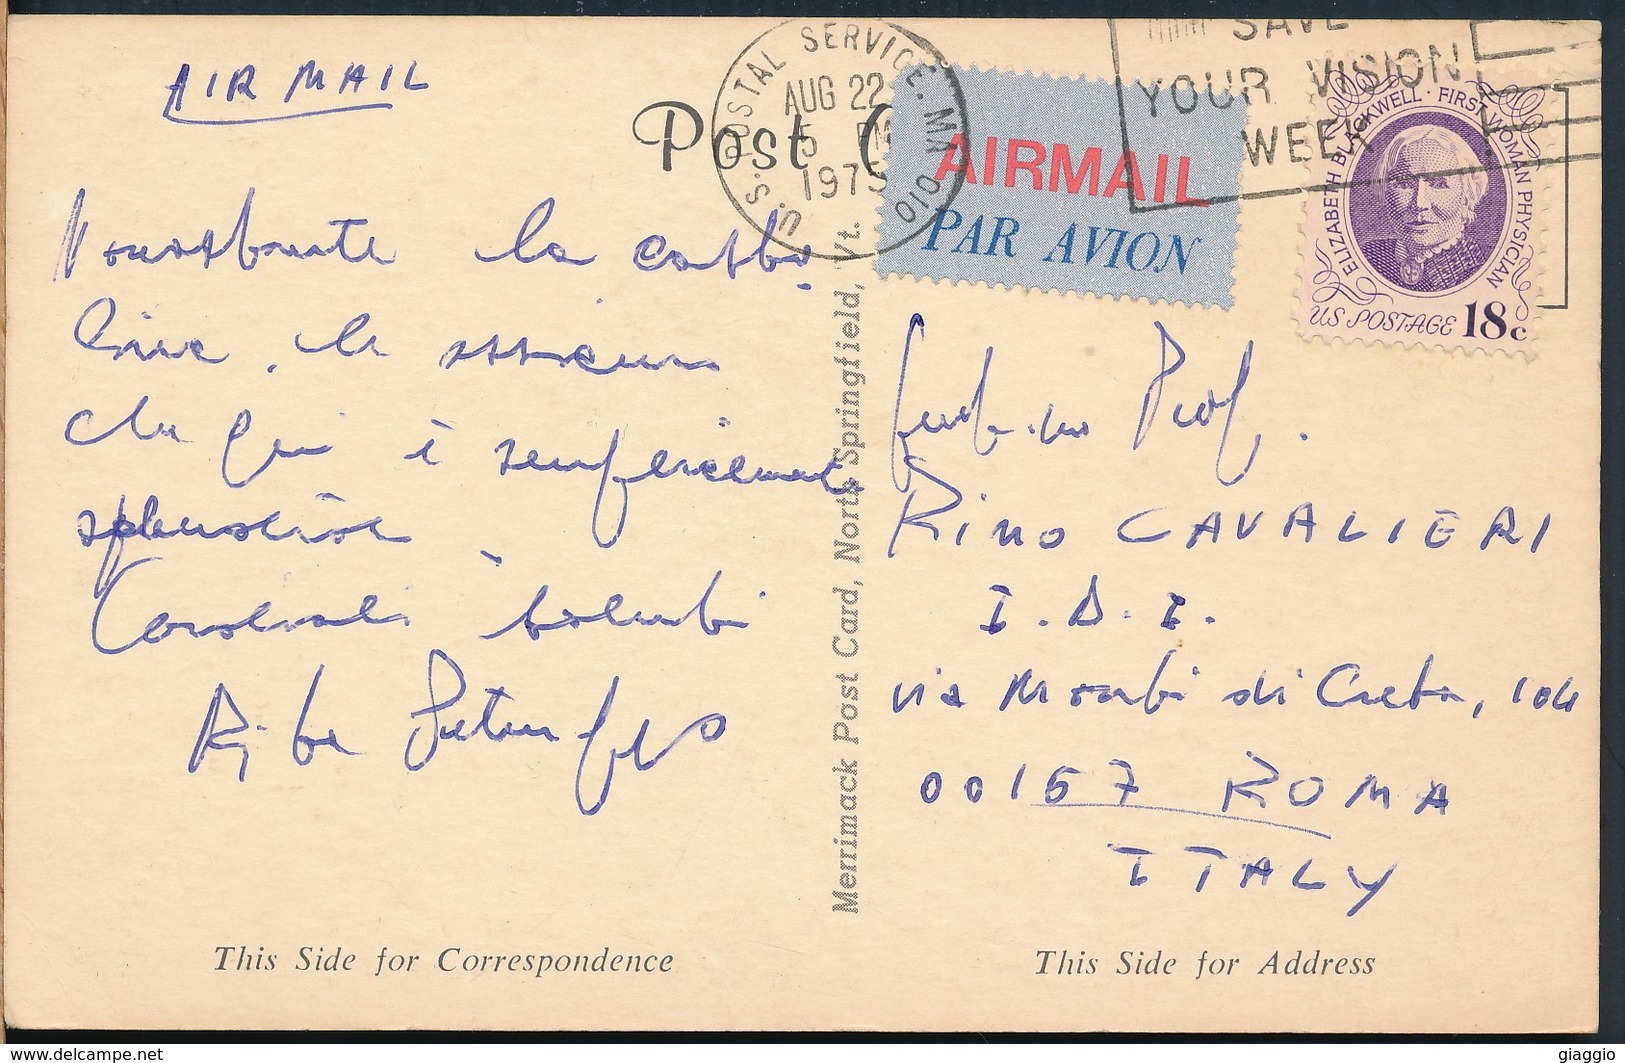 AIR MAIL
Post C
U.S. POSTAL SERVICE. MA 010
AUG 22
5 PM
1975
AIRMAIL
PAR AVION
SAVE
YOUR VISION
WEEK
ELIZABETH BLACKWELL · FIRST WOMAN PHYSICIAN
US POSTAGE 18c
Nonostante la
che qui è semplicemente
splendido.
Cordiali saluti
Prof.
Rino CAVALIERI
I.D.I.
via Monti di Creta, 104
00167 ROMA
ITALY
Merrimack Post Card, North Springfield, Vt.
This Side for Correspondence
This Side for Address
www.delcampe.net
giaggio